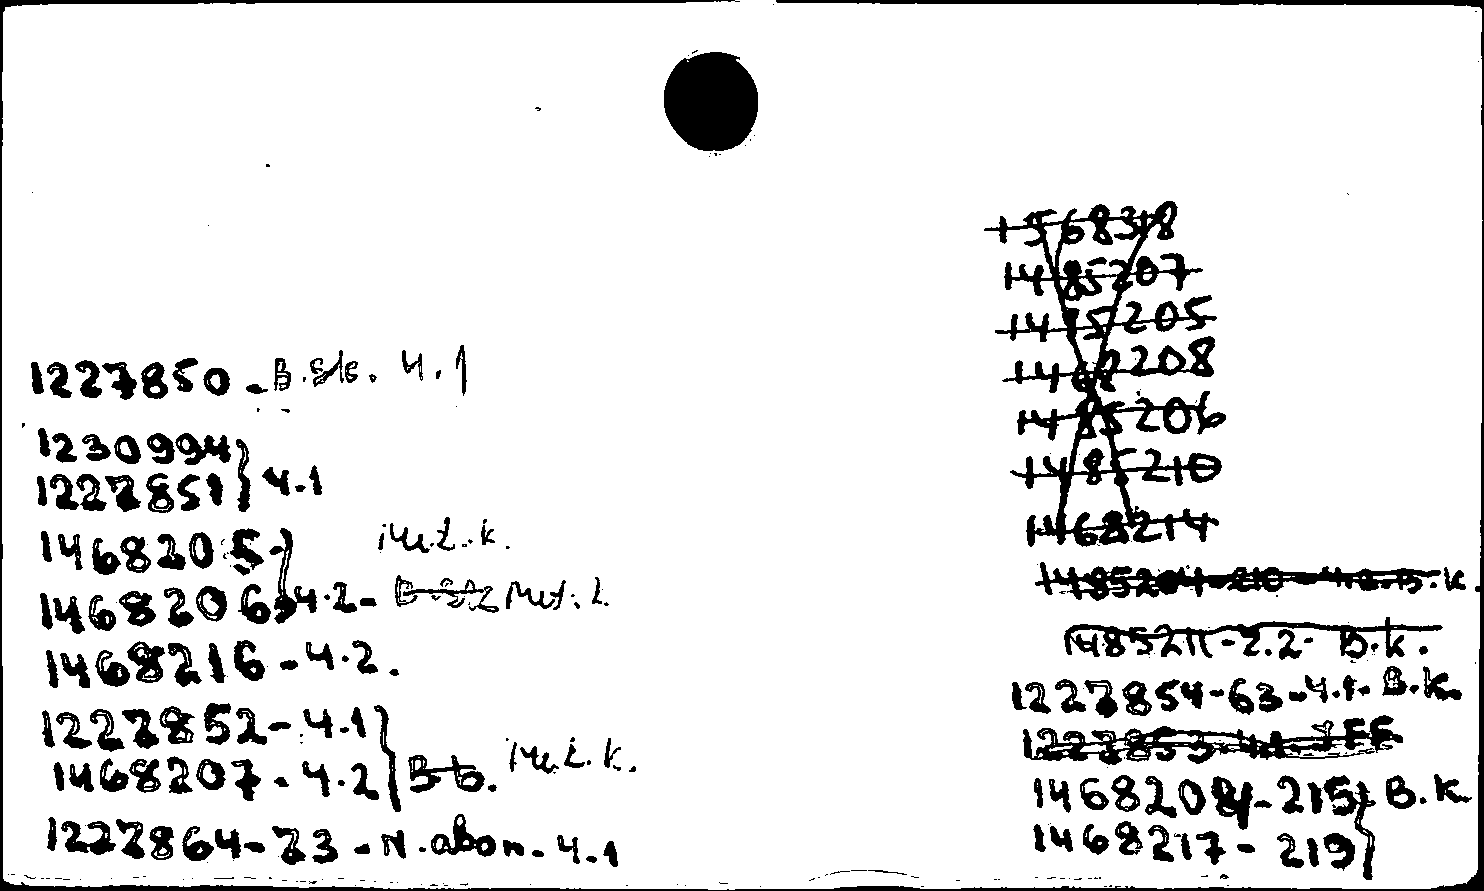 1227850 - B.sk. 4.1
1230994
1227851 } 4.1
1468205 - } Met. k.
1468206 } 4.2 - Met. k.
1468216 - 4.2.
1227852 - 4.1
1468207 - 4.2 } Met. k.
1227864 - 73 - N. abon. 4.1
1568318
1485207
1485205
1468208
1485206
1485210
1468214
1485204-210 - 4.2. B.k.
1485211 - 2.2 - B.k.
1227854-63-4.1. B.k.
1227853-4.1-
1468208-215 } B.k.
1468217 - 219